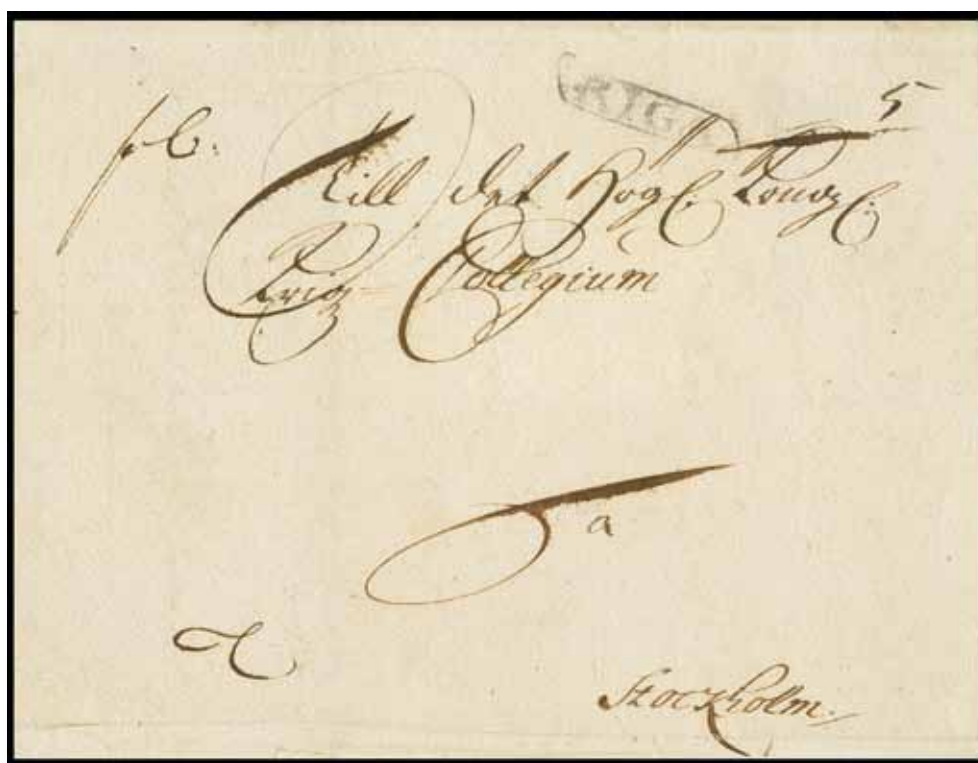 RIG
5
Till det Högl. Kongl.
Krigz Collegium
a
Stockholm.